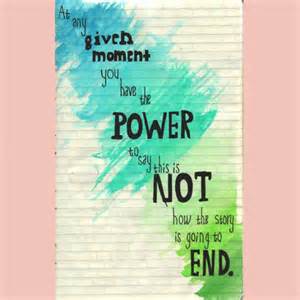 At
any
given
moment
you
have the
POWER
to
say this is
NOT
how the story
is going to
END.